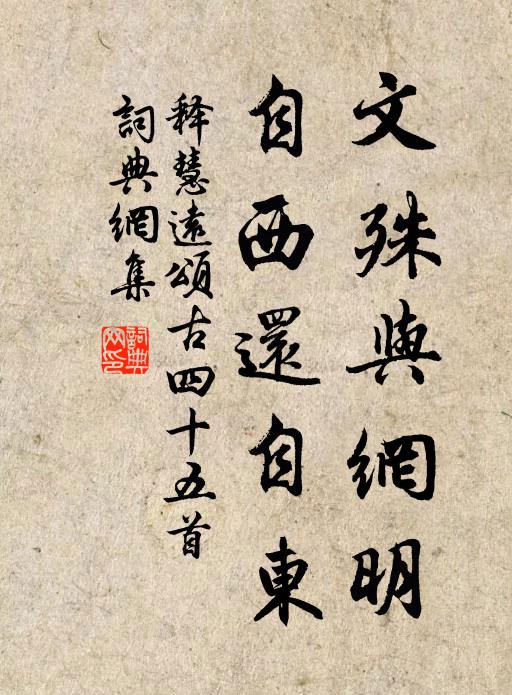 文殊與網明
自西還自東
释慧遠頌古四十五首
詞典網集
詞典网印